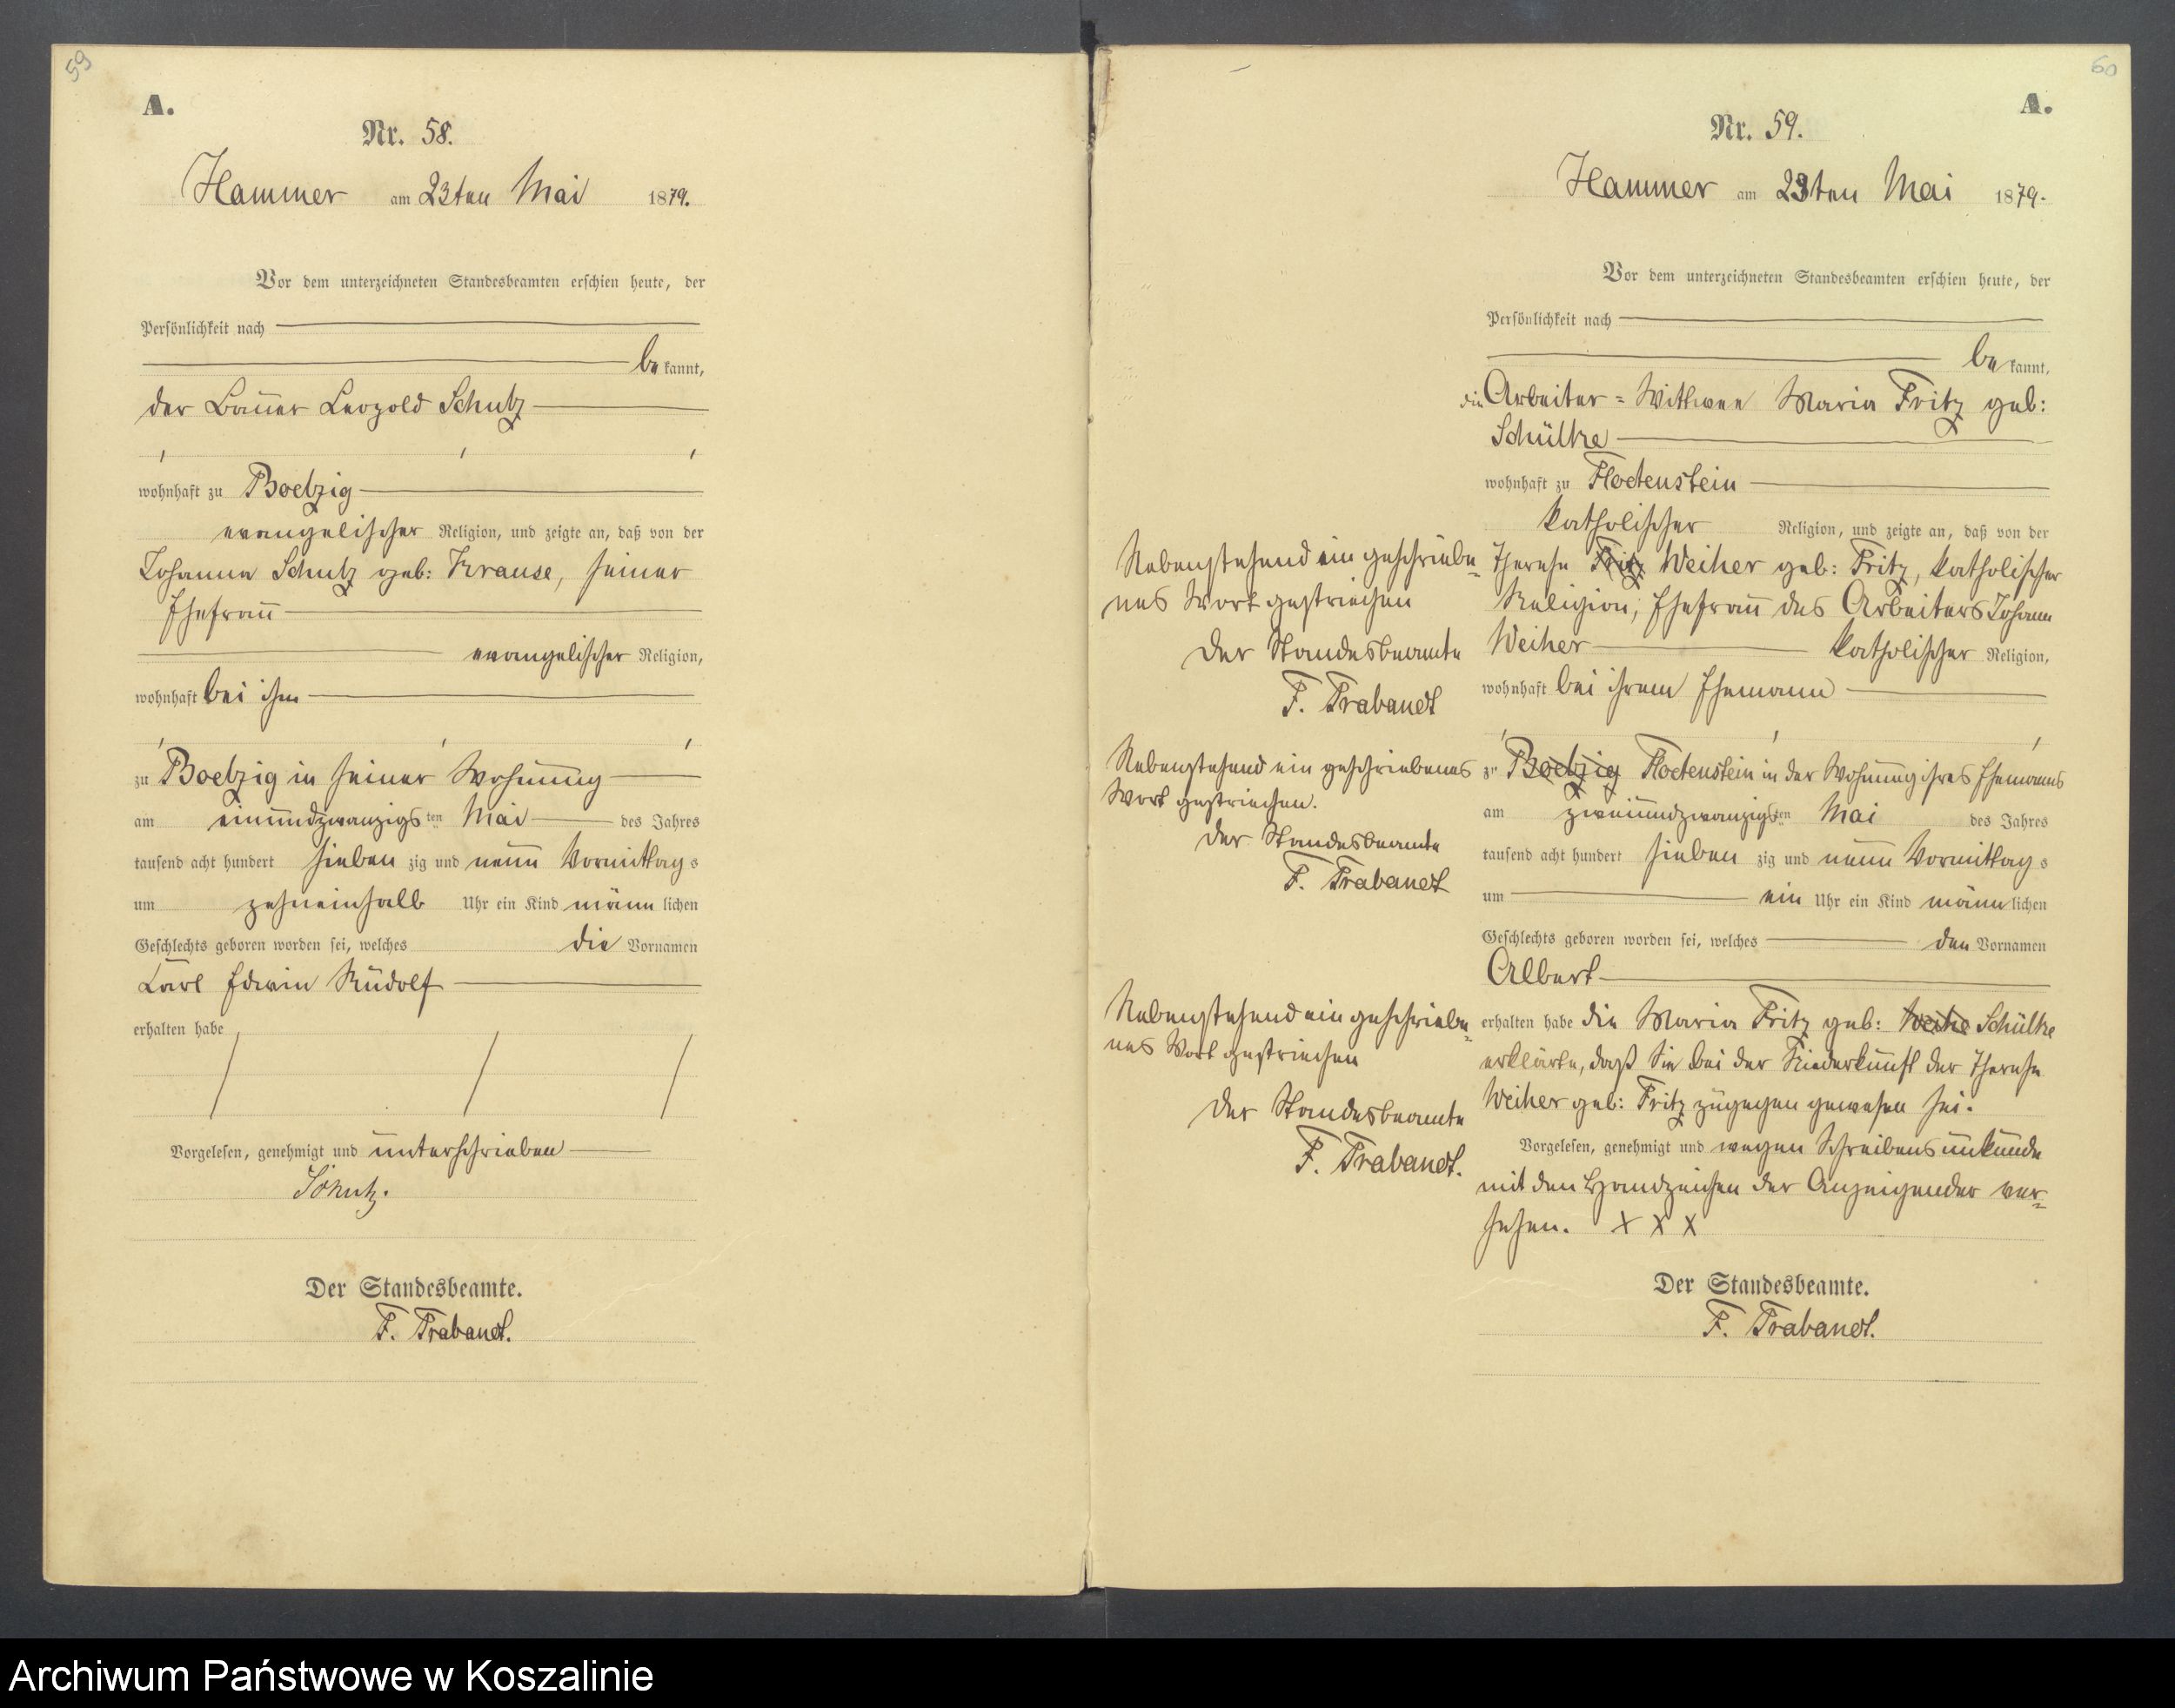 59
A.
Nr. 58.
Hammer am 23ten Mai 1879.
Vor dem unterzeichneten Standesbeamten erschien heute, der
Persönlichkeit nach
be kannt,
der Bauer Leopold Schulz
wohnhaft zu Boelzig
evangelischer Religion, und zeigte an, daß von der
Johanna Schulz geb: Krause, seiner
Ehefrau
evangelischer Religion,
wohnhaft bei ihm
zu Boelzig in seiner Wohnung
am einundzwanzigs ten Mai des Jahres
tausend acht hundert sieben zig und neun Vormittag s
um zehneinhalb Uhr ein Kind männ lichen
Geschlechts geboren worden sei, welches die Vornamen
Carl Edwin Rudolf
erhalten habe
Vorgelesen, genehmigt und unterschrieben
Schulz.
Der Standesbeamte.
F. Trabandt.
60
A.
Nr. 59.
Hammer am 23ten Mai 1879.
Vor dem unterzeichneten Standesbeamten erschien heute, der
Persönlichkeit nach
be kannt,
die Arbeiter=Wittwee Maria Fritz geb:
Schültke
wohnhaft zu Floetenstein
katholischer Religion, und zeigte an, daß von der
Therese Fritz Weiher geb: Fritz, katholischer
Religion, Ehefrau des Arbeiters Johann
Weiher katholischer Religion,
wohnhaft bei ihrem Ehemann
zu Boelzig Floetenstein in der Wohnung ihres Ehemanns
am zweiundzwanzigsten Mai des Jahres
tausend acht hundert sieben zig und neun Vormittag s
um ein Uhr ein Kind männ lichen
Geschlechts geboren worden sei, welches den Vornamen
Albert
erhalten habe die Maria Fritz geb: Schültke
erklärte, daß Sie bei der Niederkunft der Therese
Weiher geb: Fritz zugegen gewesen sei.
Vorgelesen, genehmigt und wegen Schreibensunkunde
mit den Handzeichen der Anzeigender ver=
sehen. X X X
Der Standesbeamte.
F. Trabandt.
Nebenstehend ein geschriebe=
nes Wort gestrichen
Der Standesbeamte
F. Trabandt
Nebenstehend ein geschriebenes
Wort gestrichen.
Der Standesbeamte
F. Trabandt
Nebenstehend ein geschriebe=
nes Wort gestrichen
Der Standesbeamte
F. Trabandt.
Archiwum Państwowe w Koszalinie